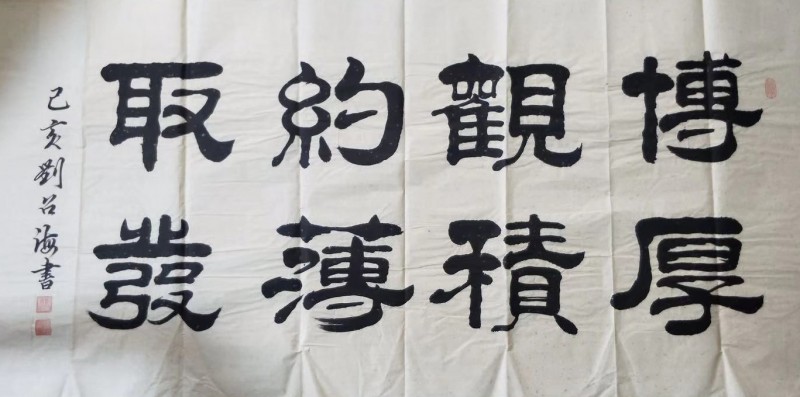 博觀約取
厚積薄發
己亥劉召海書